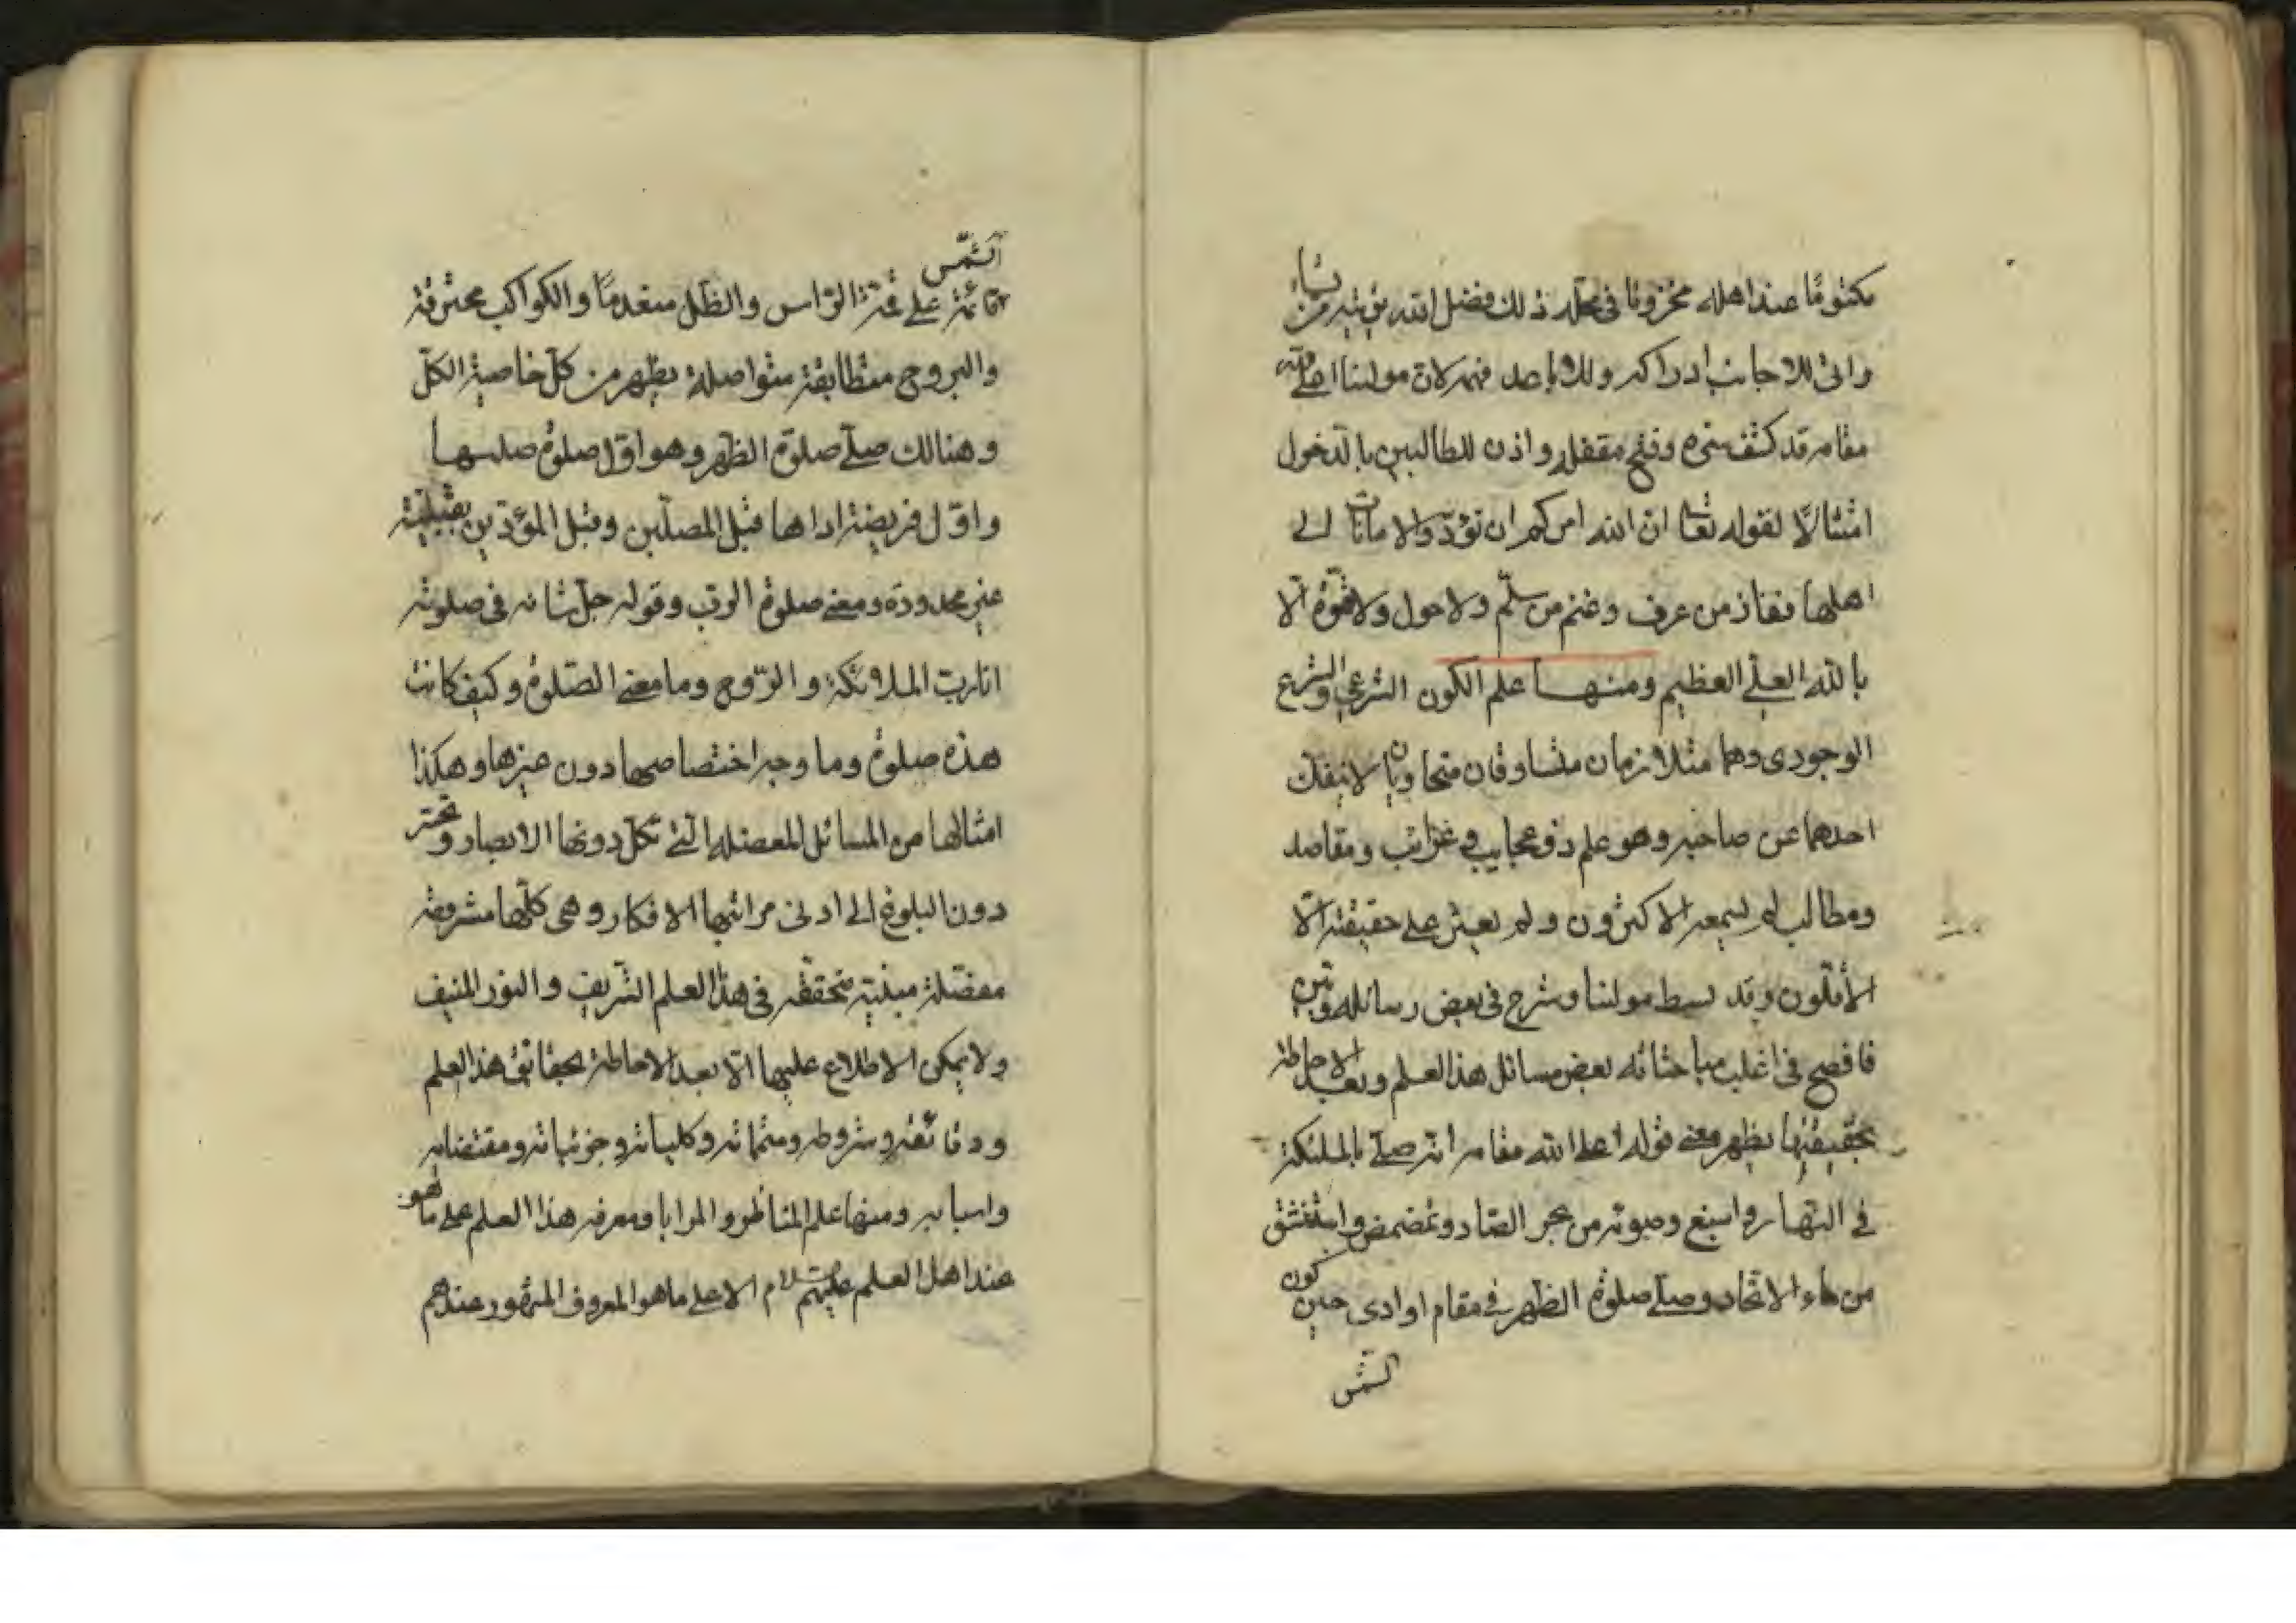 مكتوما عند اهله مخزونا فى محله ذلك فضل الله يؤتيه من يشاء
وانى للاجانب ادراكه وللاباعد فهمه لان مولينا اعلى الله
مقامه قد كشف ستره وفتح مقفله واذن للطالبين بالدخول
امتثالا لقوله تعالى ان الله امركم ان تؤدوا الامانات الى
اهلها ففاز من عرف وغنم من سلّم ولا حول ولا قوّة الّا
بالله العلى العظيم ومنها علم الكون الشرعى والشرع
الوجودى وهما متلازمان متساوقان متحاويان لا ينفك
احدهما عن صاحبه وهو علم ذو عجايب وغرائب ومقاصد
ومطالب لم يسمعه الاكثرون ولم يعثر على حقيقته الّا
الأقلّون وقد بسط مولينا وشرح فى بعض رسائله وبيّن
فافصح فى اغلب مباحثاته بعض مسائل هذا العلم وبعد الاحاطة
بحقيقتها يظهر معنى قوله اعلى الله مقامه انه صلّى بالملئكة
فى النهار واسبغ وضوئه من بحر الصاد وتمضمض واستنشق
من هاء الاتحاد وصلّى صلوة الظهر فى مقام او ادنى حين كون
الشمس
الشمس
قائمة على قمّة الرّاس والظّل منعدماً والكواكب محترقة
والبروج متطابقة متواصلة يظهر من كلّ خاصية الكلّ
وهنالك صلّى صلوة الظهر وهو اوّل صلوة صليها
واوّل فريضة اداها قبل المصلّين وقبل المؤدّين بقبليّة
غير محدودة ومعنى صلوة الرب وقوله جلّ شانه فى صلوته
انا ربّ الملائكة والرّوح وما معنى الصّلوة وكيف كانت
هذه صلوة وما وجه اختصاصها دون غيرها وهكذا
امثالها من المسائل المعضله الّتى تكلّ دونها الابصار وتحير
دون البلوغ الى ادنى مراتبها الافكار وهى كلّها مشروحة
مفصّلة مبيّنة محققّة فى هذا العلم الشّريف والنور المنيف
ولا يمكن الاطلاع عليها الّا بعد الاحاطة بحقائق هذا العلم
ودقائقه وشروطه ومتمماته وكلياته وجزئياته ومقتضياته
واسبابه ومنها علم المناظر والمرايا ومعرفة هذا العلم على ما هو
عند اهل العلم عليهم السلام لا على ما هو المعروف المشهور عندهم